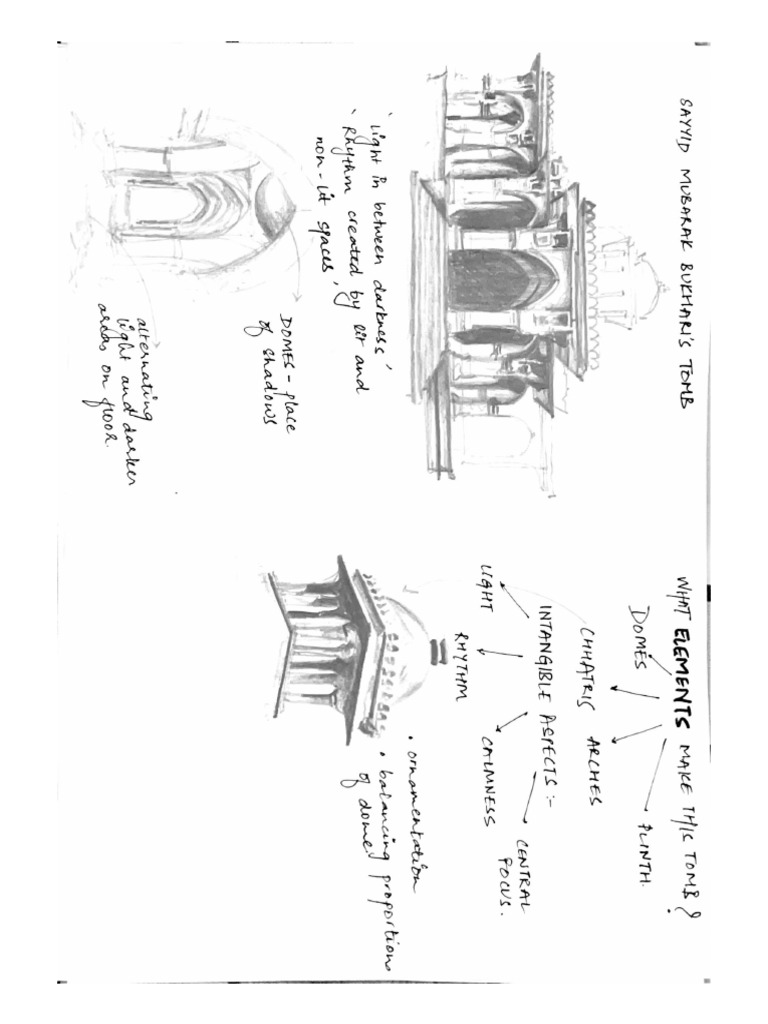 SAYYID MUBARAK BUKHARI'S TOMB
'Light in between darkness'
'Rhythm created by lit and
non-lit spaces,
DOMES - place
of shadows
alternating
light and darker
areas on floor.
WHAT ELEMENTS MAKE THIS TOMB?
DOMES
CHHATRIS
ARCHES
PLINTH.
INTANGIBLE ASPECTS :-
LIGHT
RHYTHM
CALMNESS
CENTRAL
FOCUS.
• ornamentation
• balancing proportions
of dome.